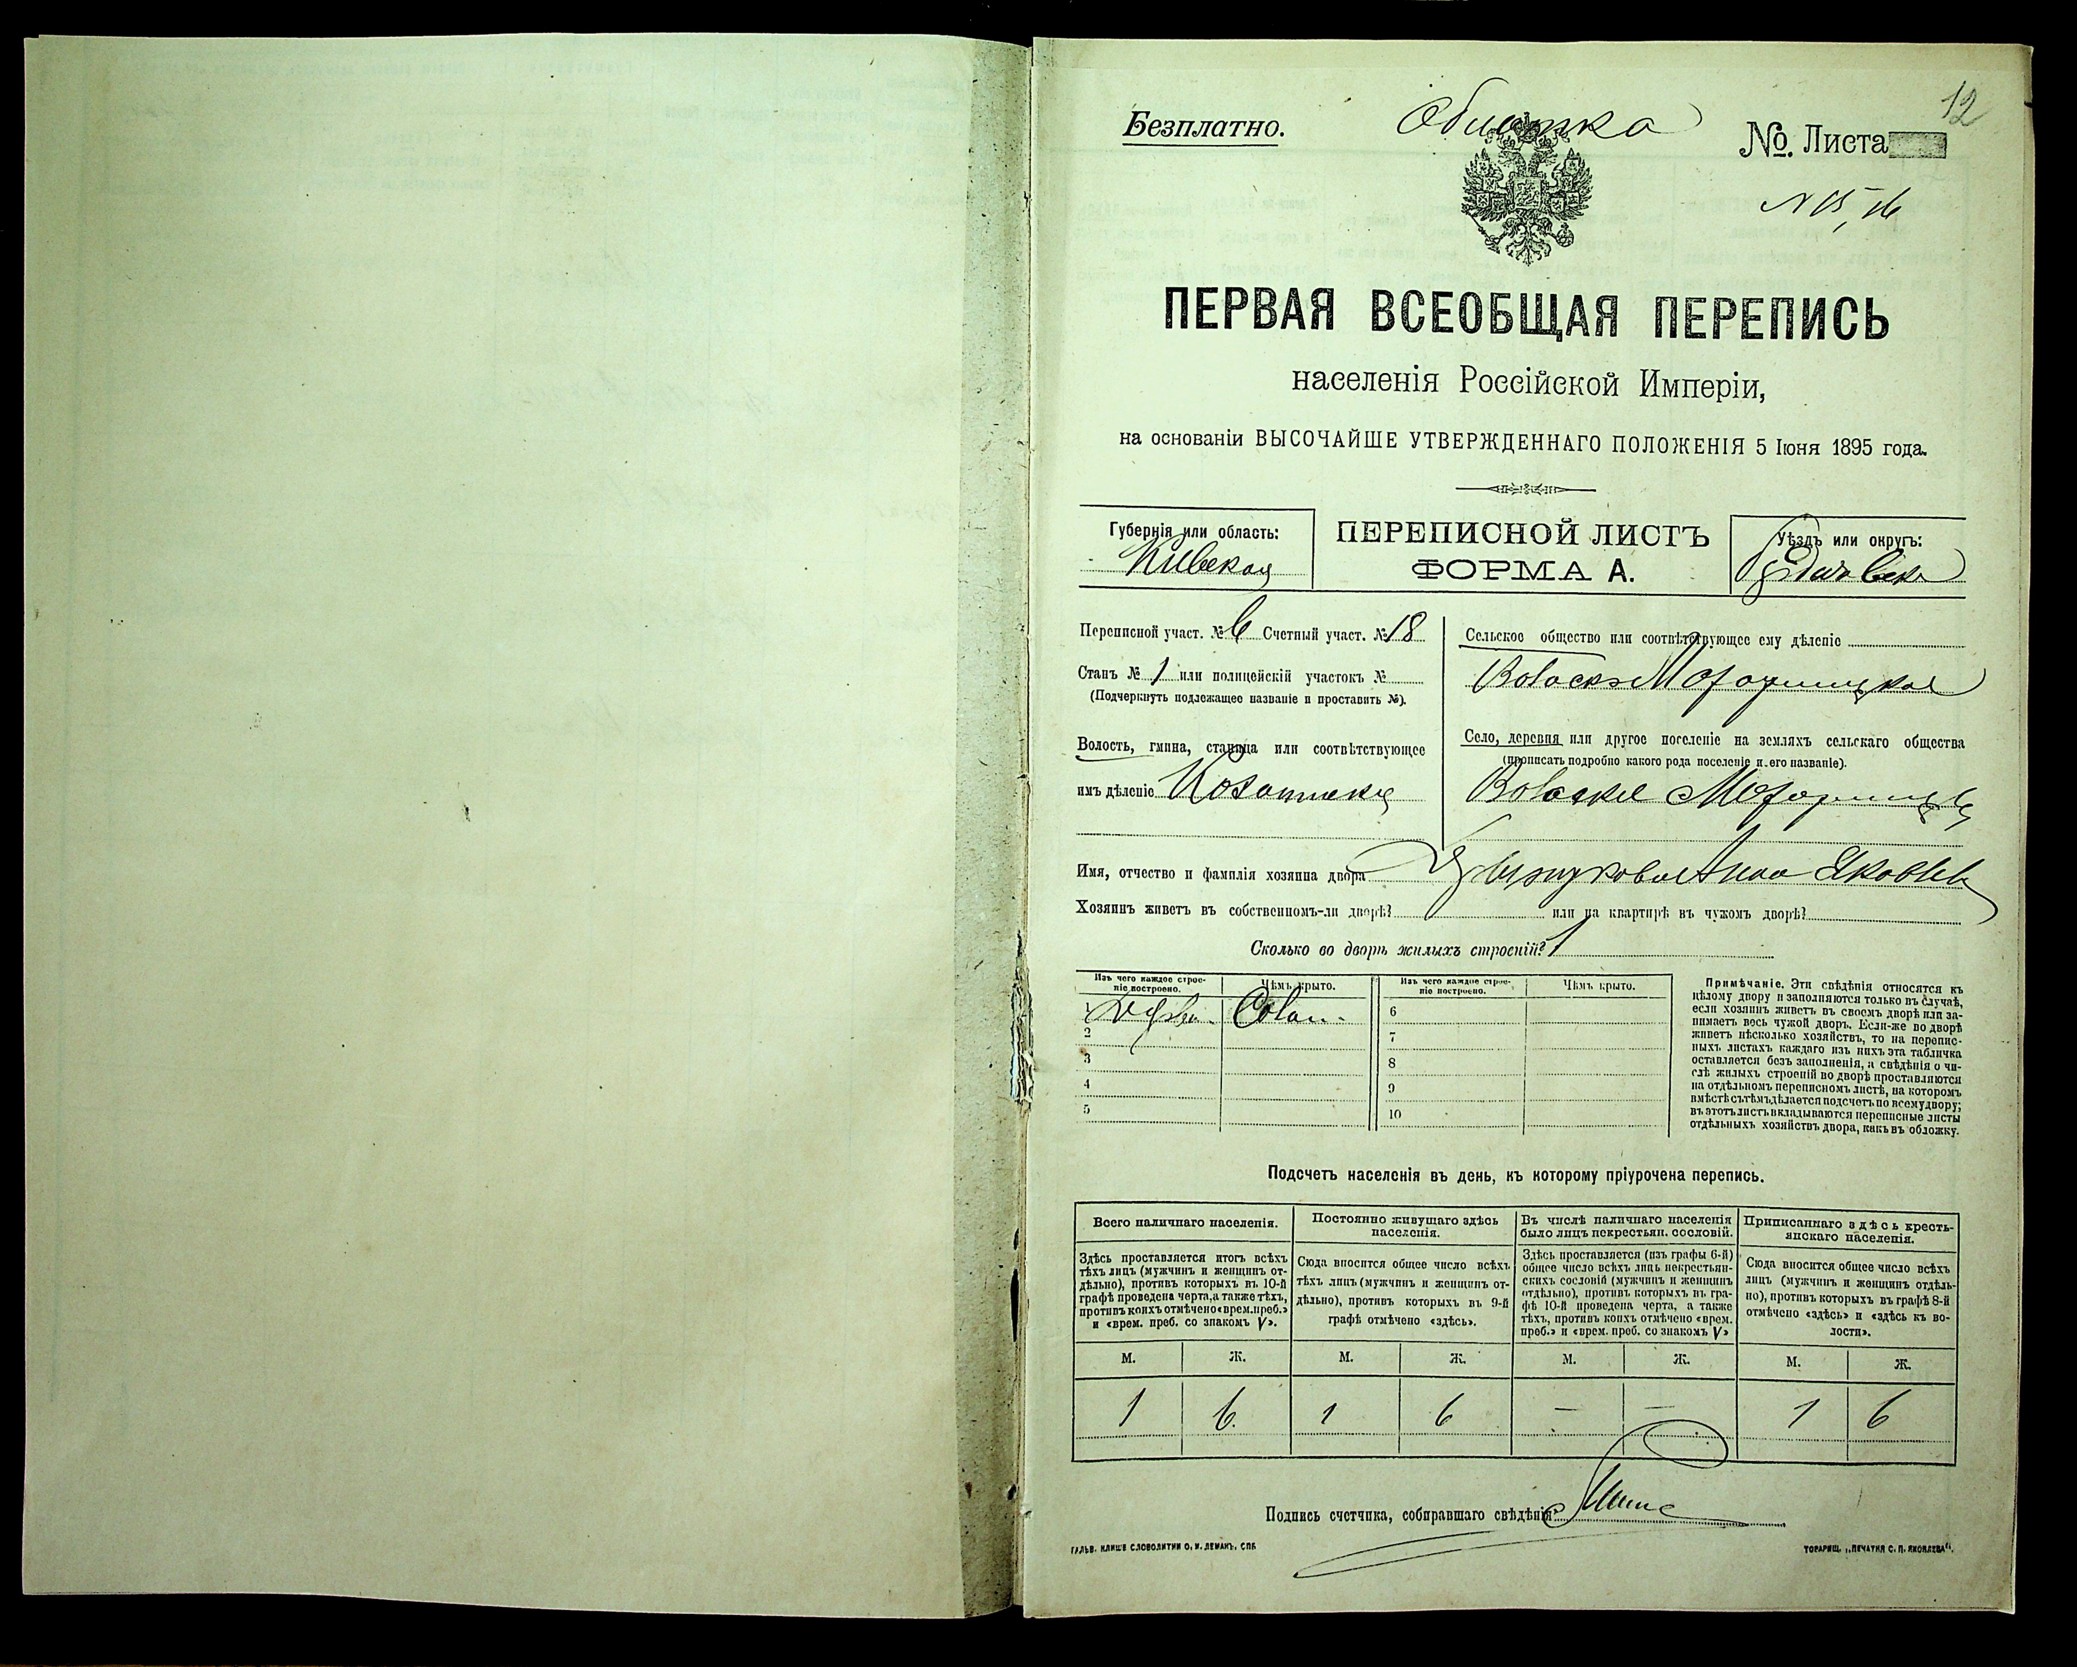 12
Безплатно.
Обложка
№. Листа
N 15, 16
ПЕРВАЯ ВСЕОБЩАЯ ПЕРЕПИСЬ
населенія Россійской Имперіи,
на основаніи ВЫСОЧАЙШЕ УТВЕРЖДЕННАГО ПОЛОЖЕНІЯ 5 Іюня 1895 года.
Губернія или область:
Кіевская
ПЕРЕПИСНОЙ ЛИСТЪ
ФОРМА А.
Уѣздъ или округъ:
Переписной участ. № 6 Счетный участ. № 18
Станъ № 1 или полицейскій участокъ №
(Подчеркнуть подлежащее названіе и проставить №).
Волость, гмина, станица или соотвѣтствующее
имъ дѣленіе
Сельское общество или соотвѣтствующее ему дѣленіе
Село, деревня или другое поселеніе на земляхъ сельскаго общества
(прописать подробно какого рода поселеніе и его названіе).
Имя, отчество и фамилія хозяина двора Анна Яковлев
Хозяинъ живетъ въ собственномъ-ли дворѣ? или на квартирѣ въ чужомъ дворѣ?
Сколько во дворѣ жилыхъ строеній? 1
Изъ чего каждое строеніе построено.
Чѣмъ крыто.
Изъ чего каждое строеніе построено.
Чѣмъ крыто.
1
Солом.
2
3
4
5
6
7
8
9
10
Примѣчаніе. Эти свѣдѣнія относятся къ
цѣлому двору и заполняются только въ случаѣ,
если хозяинъ живетъ въ своемъ дворѣ или за-
нимаетъ весь чужой дворъ. Если-же во дворѣ
живетъ нѣсколько хозяйствъ, то на перепис-
ныхъ листахъ каждаго изъ нихъ эта табличка
оставляется безъ заполненія, а свѣдѣнія о чи-
слѣ жилыхъ строеній во дворѣ проставляются
на отдѣльномъ переписномъ листѣ, на которомъ
вмѣстѣ съ тѣмъ дѣлается подсчетъ по всему двору;
въ этотъ листъ вкладываются переписные листы
отдѣльныхъ хозяйствъ двора, какъ въ обложку.
Подсчетъ населенія въ день, къ которому пріурочена перепись.
Всего наличнаго населенія.
Здѣсь проставляется итогъ всѣхъ
тѣхъ лицъ (мужчинъ и женщинъ от-
дѣльно), противъ которыхъ въ 10-й
графѣ проведена черта, а также тѣхъ,
противъ коихъ отмѣчено «врем. преб.»
и «врем. преб. со знакомъ V».
Постоянно живущаго здѣсь
населенія.
Сюда вносится общее число всѣхъ
тѣхъ лицъ (мужчинъ и женщинъ от-
дѣльно), противъ которыхъ въ 9-й
графѣ отмѣчено «здѣсь».
Въ числѣ наличнаго населенія
было лицъ некрестьян. сословій.
Здѣсь проставляется (изъ графы 6-й)
общее число всѣхъ лицъ некрестьян-
скихъ сословій (мужчинъ и женщинъ
отдѣльно), противъ которыхъ въ гра-
фѣ 10-й проведена черта, а также
тѣхъ, противъ коихъ отмѣчено «врем.
преб.» и «врем. преб. со знакомъ V»
Приписаннаго здѣсь кресть-
янскаго населенія.
Сюда вносится общее число всѣхъ
лицъ (мужчинъ и женщинъ отдѣль-
но), противъ которыхъ въ графѣ 8-й
отмѣчено «здѣсь» и «здѣсь къ во-
лости».
М. Ж. М. Ж. М. Ж. М. Ж.
1 6. 1 6 — — 1 6
Подпись счетчика, собиравшаго свѣдѣнія:
ГАЛЬВ. КЛИШЕ СЛОВОЛИТНИ О. И. ЛЕМАНЪ, СПБ
ТОВАРИЩ. „ПЕЧАТНЯ С. П. ЯКОВЛЕВА".